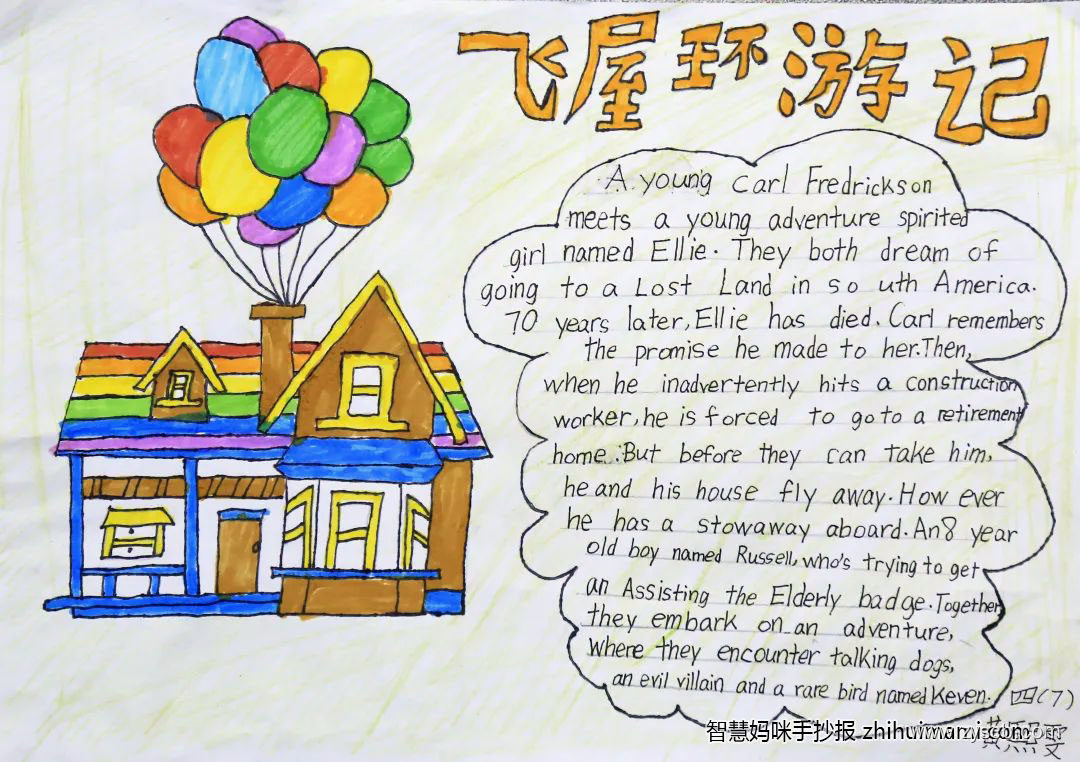 飞屋环游记
A young Carl Fredrickson
meets a young adventure spirited
girl named Ellie. They both dream of
going to a Lost Land in so uth America.
70 years later, Ellie has died. Carl remembers
the promise he made to her.Then,
when he inadvertently hits a construction
worker, he is forced to go to a retirement
home.:But before they can take him,
he and his house fly away. How ever
he has a stowaway aboard. An 8 year
old boy named Russell, who's trying to get
an Assisting the Elderly badge. Together
they embark on an adventure,
where they encounter talking dogs,
an evil villain and a rare bird named Keven.
四(7)
黄熙雯
智慧妈咪手抄报 zhihuimami.com